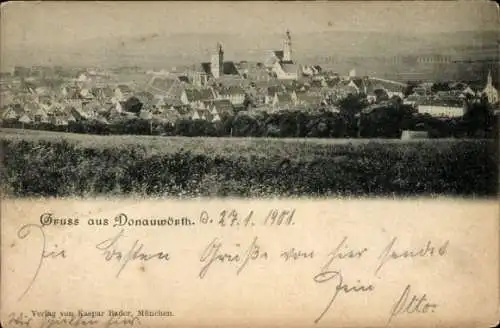 Gruss aus Donauwörth. d. 27. 1. 1901
Die besten Grüße von hier sendet
Dein Otto.
Verlag von Kaspar Bader, München.